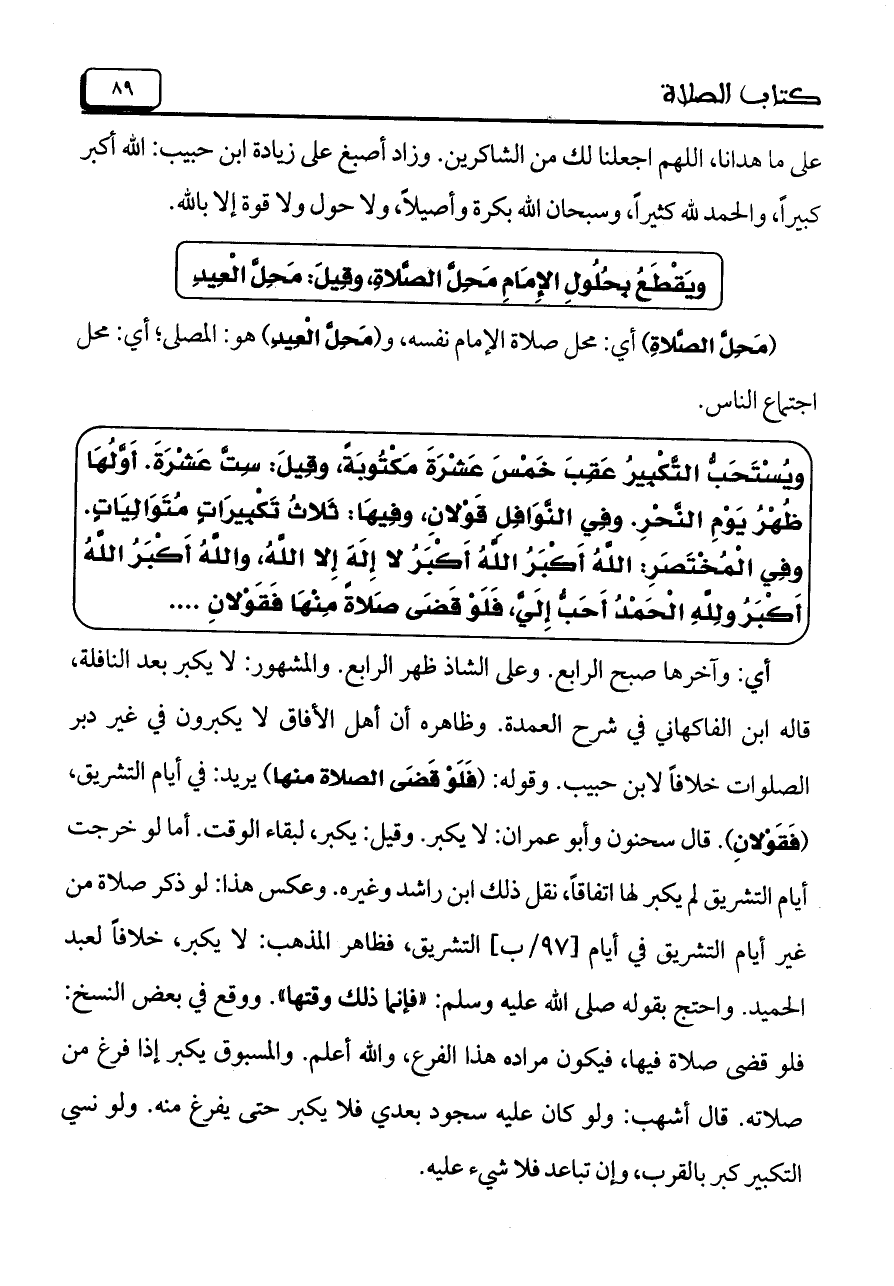 كتاب الصلاة
٨٩
على ما هدانا، اللهم اجعلنا لك من الشاكرين. وزاد أصبغ على زيادة ابن حبيب: الله أكبر
كبيراً، والحمد لله كثيراً، وسبحان الله بكرة وأصيلاً، ولا حول ولا قوة إلا بالله.
ويَقْطَعُ بِحُلُولِ الإِمَامِ مَحِلَّ الصَّلاةِ، وقِيلَ: مَحِلَّ الْعِيدِ
(مَحِلَّ الصَّلاةِ) أي: محل صلاة الإمام نفسه، و(مَحِلَّ الْعِيدِ) هو: المصلى؛ أي: محل
اجتماع الناس.
ويُسْتَحَبُّ التَّكْبِيرُ عَقِبَ خَمْسَ عَشْرَةَ مَكْتُوبَةً، وقِيلَ: سِتَّ عَشْرَةَ. أَوَّلُهَا
ظُهْرُ يَوْمِ النَّحْرِ. وفِي النَّوَافِلِ قَوْلانِ، وفِيهَا: ثَلاثُ تَكْبِيرَاتٍ مُتَوَالِيَاتٍ.
وفِي الْمُخْتَصَرِ: اللَّهُ أَكْبَرُ اللَّهُ أَكْبَرُ لا إِلَهَ إِلا اللَّهُ، واللَّهُ أَكْبَرُ اللَّهُ
أَكْبَرُ ولِلَّهِ الْحَمْدُ أَحَبُّ إِلَيَّ، فَلَوْ قَضَى صَلاةً مِنْهَا فَقَوْلانِ ....
أي: وآخرها صبح الرابع. وعلى الشاذ ظهر الرابع. والمشهور: لا يكبر بعد النافلة،
قاله ابن الفاكهاني في شرح العمدة. وظاهره أن أهل الأفاق لا يكبرون في غير دبر
الصلوات خلافاً لابن حبيب. وقوله: (فَلَوْ قَضَى الصلاة منها) يريد: في أيام التشريق،
(فَقَوْلانِ). قال سحنون وأبو عمران: لا يكبر. وقيل: يكبر، لبقاء الوقت. أما لو خرجت
أيام التشريق لم يكبر لها اتفاقاً، نقل ذلك ابن راشد وغيره. وعكس هذا: لو ذكر صلاة من
غير أيام التشريق في أيام [٩٧/ب] التشريق، فظاهر المذهب: لا يكبر، خلافاً لعبد
الحميد. واحتج بقوله صلى الله عليه وسلم: «فإنما ذلك وقتها». ووقع في بعض النسخ:
فلو قضى صلاة فيها، فيكون مراده هذا الفرع، والله أعلم. والمسبوق يكبر إذا فرغ من
صلاته. قال أشهب: ولو كان عليه سجود بعدي فلا يكبر حتى يفرغ منه. ولو نسي
التكبير كبر بالقرب، وإن تباعد فلا شيء عليه.